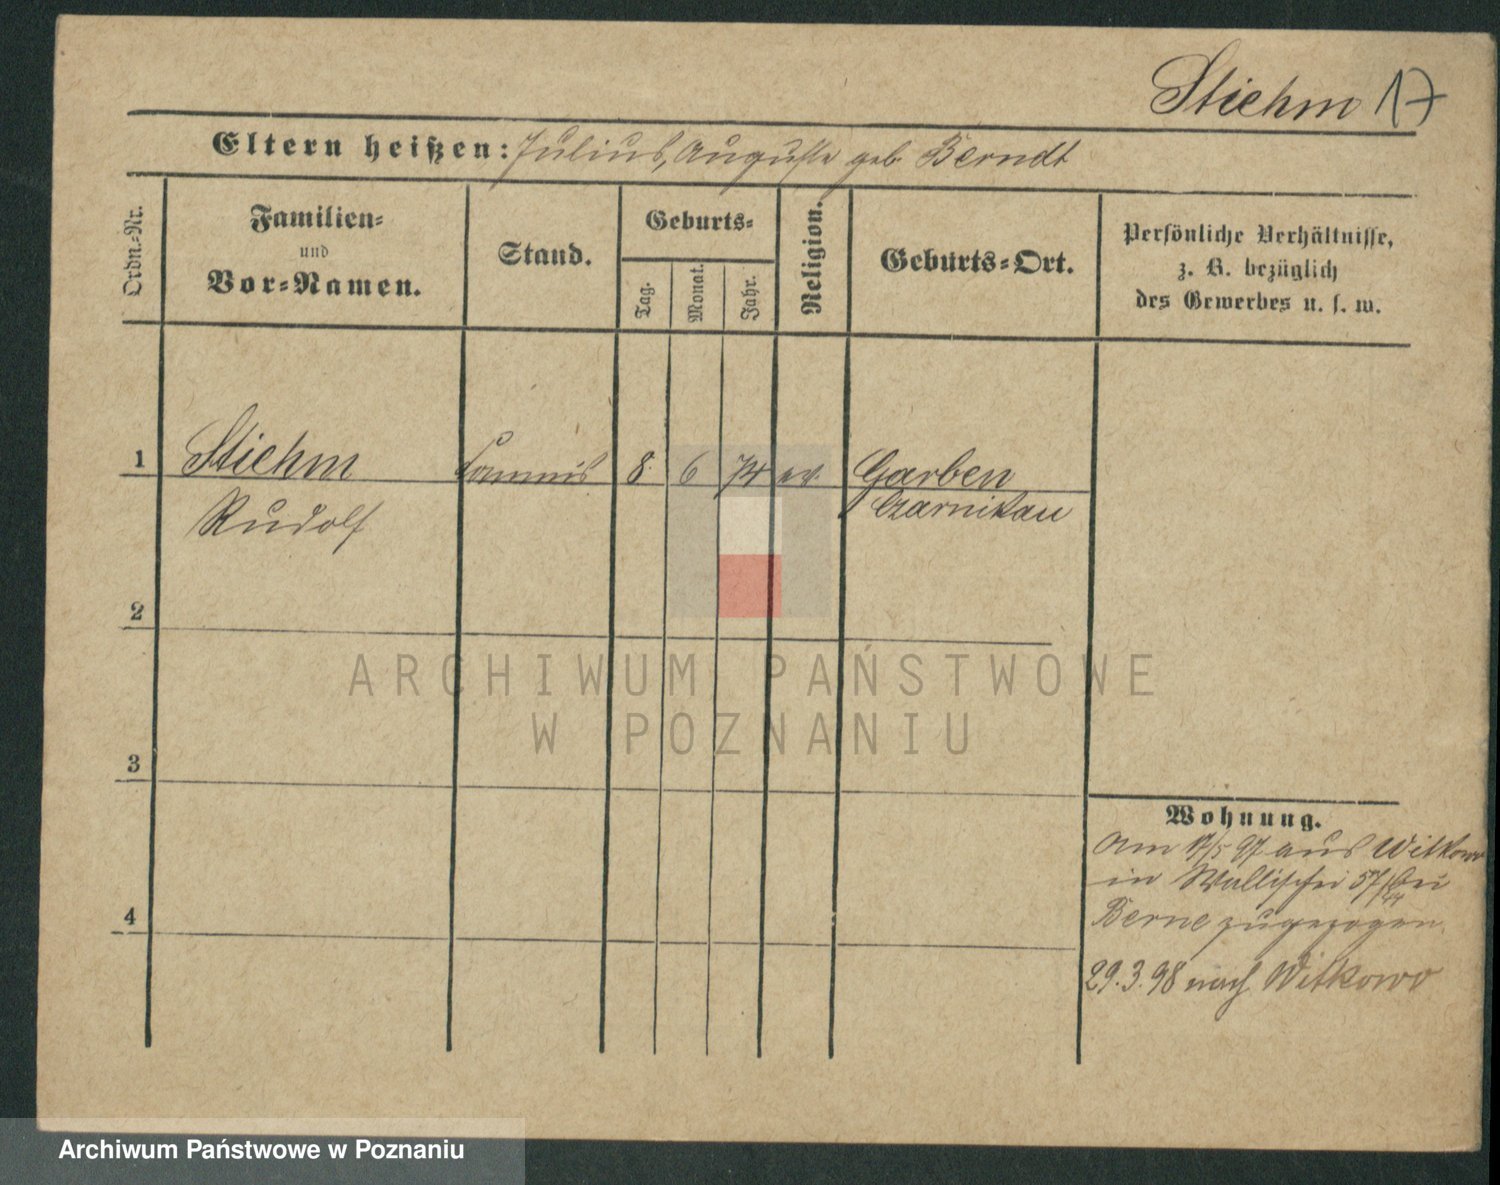 Stiehm 17
Eltern heißen: Julius, Auguste geb. Berndt
Ordn.-Nr.
Familien-
und
Vor-Namen.
Stand.
Geburts-
Tag.
Monat.
Jahr.
Religion.
Geburts-Ort.
Persönliche Verhältnisse,
z. B. bezüglich
des Gewerbes u. s. w.
1 Stiehm Commis 8. 6 74 ev. Garben
Rudolf Czarnikau
2
3
4
ARCHIWUM PAŃSTWOWE
W POZNANIU
Wohnung.
Am 17/5 97 aus Witkowo
in Wallischei 57/ bei
Berne zugezogen
29.3.98 nach Witkowo
Archiwum Państwowe w Poznaniu